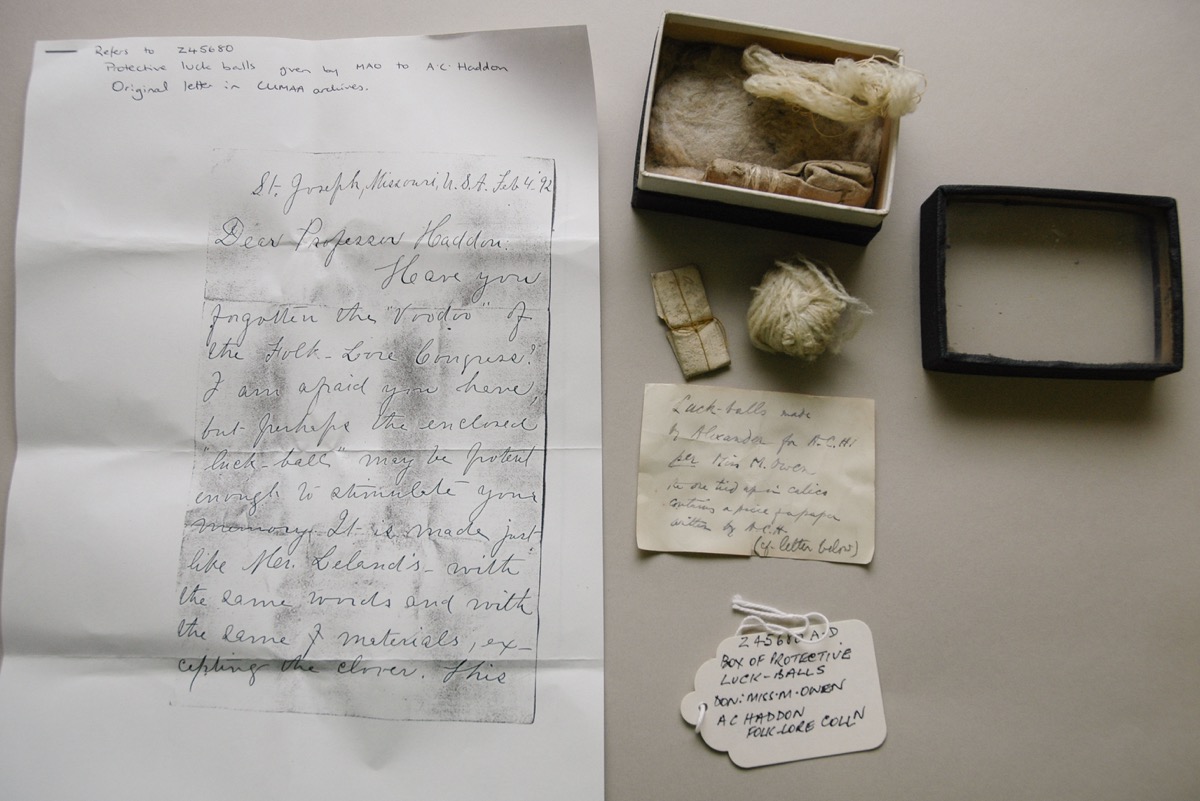 Refers to Z45680
Protective luck balls given by MAO to A.C. Haddon
Original letter in CUMAA archives.
St. Joseph, Missouri, U.S.A. Feb 4. '92
Dear Professor Haddon:
Have you
forgotten the "Voodoo" of
the Folk-Lore Congress?
I am afraid you have,
but perhaps the enclosed
"luck-ball" may be potent
enough to stimulate your
memory. It is made just
like Mr. Leland's - with
the same words and with
the same materials, ex-
cepting the clover. This
Luck-balls made
by Alexander for A.C.H.
per Miss M. Owen
the one tied up in calico
contains a piece of paper
written by A.C.H.
(cf. letter below)
Z45680 A-D
BOX OF PROTECTIVE
LUCK-BALLS
DON: MISS.M.OWEN
A C HADDON
FOLK-LORE COLLN